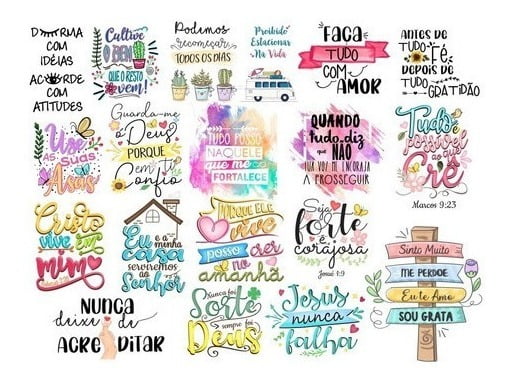 DORMA
COM
IDÉIAS
ACORDE
COM
ATITUDES
Cultive
O BEM
QUE O RESTO
vem!
Podemos
recomeçar
TODOS OS DIAS
Proibido
Estacionar
Na Vida
FAÇA
TUDO
COM
AMOR
ANTES DE
TUDO Fé,
DEPOIS DE
TUDO
GRATIDÃO
Use
AS SUAS
Asas
Guarda-me
ó Deus
PORQUE
em Ti
Confio
TUDO POSSO
NAQUELE
que me
FORTALECE
QUANDO
tudo diz
QUE NÃO
TUA VOZ ME ENCORAJA
A PROSSEGUIR
Tudo
é
possível
ao que
Crê
Marcos 9:23
Cristo
vive em
mim
Eu e a
minha
casa
serviremos
ao
Senhor
PORQUE ELE
vive
POSSO crer
no
amanhã
Seja
forte
e
corajosa
Josué 1:9
Sinto Muito
ME PERDOE
Eu te Amo
SOU GRATA
NUNCA
deixe de
ACREDITAR
Nunca foi
Sorte
sempre foi
Deus
Jesus
nunca
falha